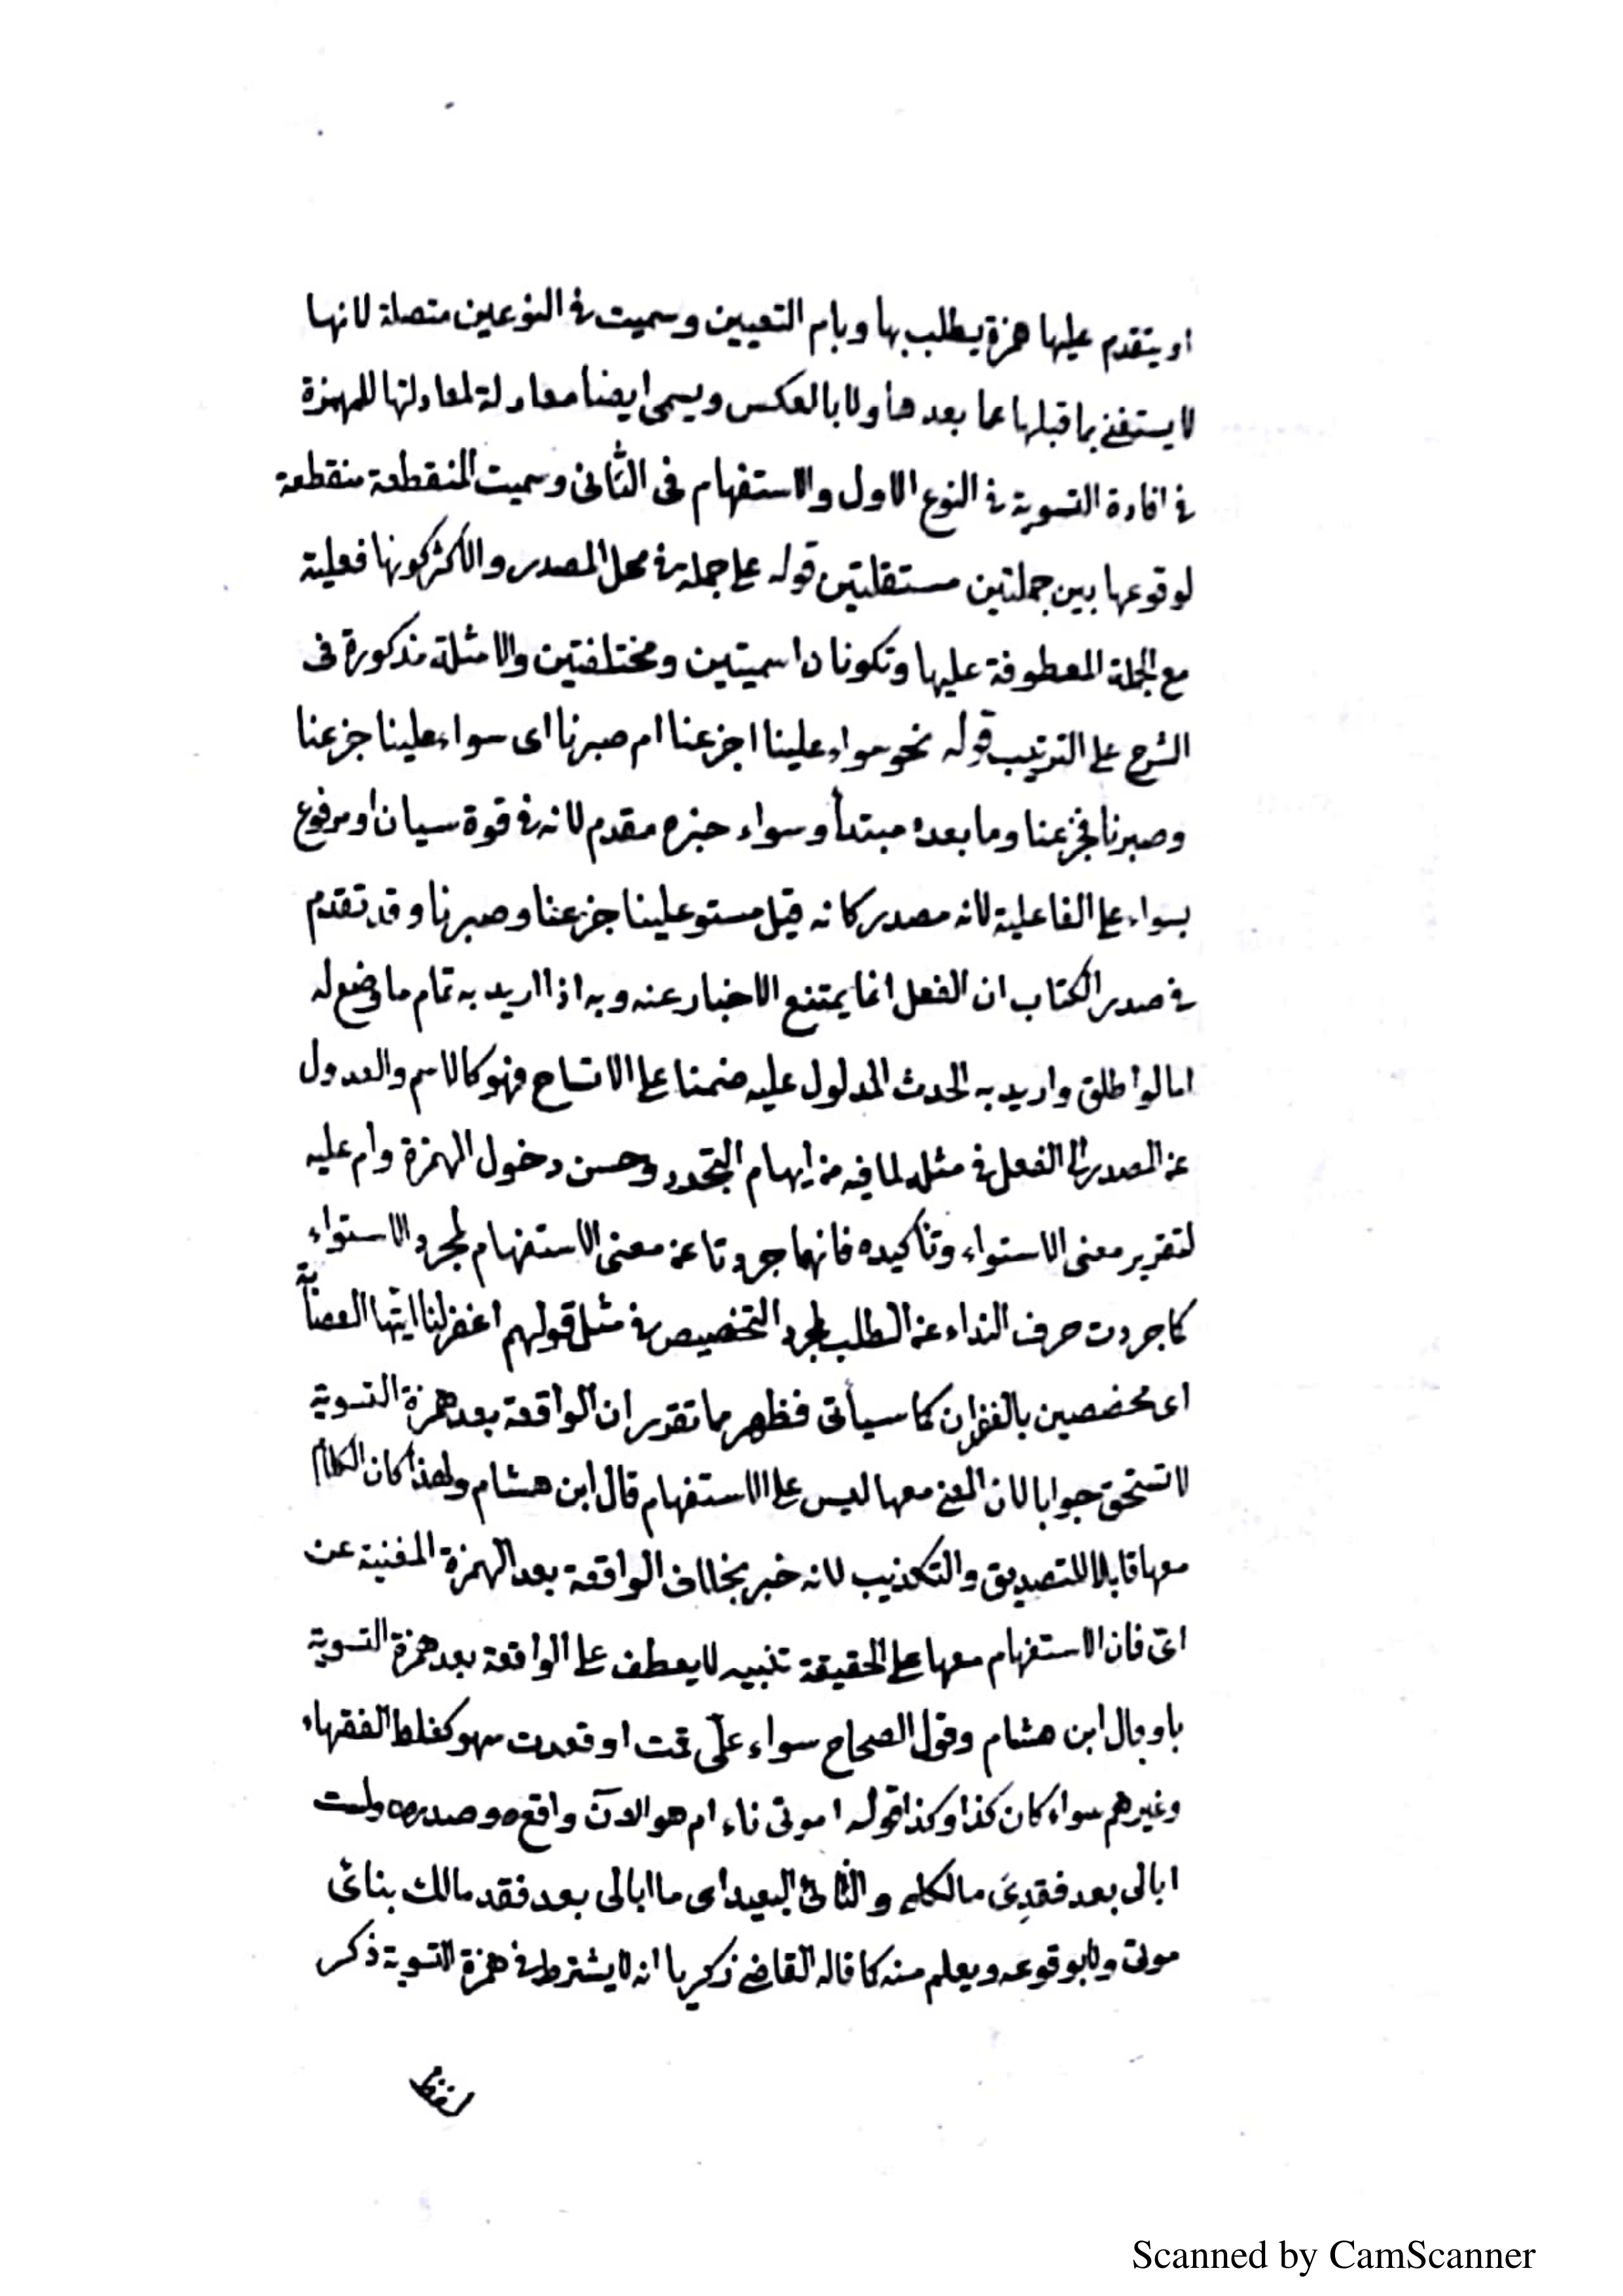 او يتقدم عليها همزة يطلب بها وبام التعيين وسميت في النوعين متصلة لانها
لا يستغنى بما قبلها عما بعدها ولا بالعكس ويسمى ايضا معادلة لمعادلتها للهمزة
في افادة التسوية في النوع الاول والاستفهام فى الثانى وسميت المنقطعة منقطعة
لوقوعها بين جملتين مستقلتين قوله على جملة في محل المصدر والاكثر كونها فعلية
مع الجملة المعطوفة عليها وتكونان اسميتين ومختلفتين والامثلة مذكورة فى
الشرح على الترتيب قوله نحو سواء علينا اجزعنا ام صبرنا اى سواء علينا جزعنا
وصبرنا فجزعنا وما بعده مبتدأ وسواء خبره مقدم لانه في قوة سيان او مرفوع
بسواء على الفاعلية لانه مصدر كانه قيل مستو علينا جزعنا وصبرنا وقد تقدم
في صدر الكتاب ان الفعل انما يمتنع الاخبار عنه وبه اذا اريد به تمام ما وضع له
اما لو اطلق واريد به الحدث المدلول عليه ضمنا على الاتساع فهو كالاسم والعدول
عن المصدر الى الفعل في مثله لما فيه من ايهام التجدد وحسن دخول الهمزة وام عليه
لتقرير معنى الاستواء وتأكيده فانهما جردتا عن معنى الاستفهام لمجرد الاستواء
كما جردت حرف النداء عن الطلب لمجرد التخصيص في مثل قولهم اغفر لنا ايتها العصابة
اى مخصصين بالغفران كما سيأتى فظهر مما تقرر ان الواقعة بعد همزة التسوية
لا تستحق جوابا لان المعنى معها ليس على الاستفهام قال ابن هشام ولهذا كان الكلام
معها قابلا للتصديق والتكذيب لانه خبر بخلاف الواقعة بعد الهمزة المغنية عن
اىّ فان الاستفهام معها على الحقيقة تنبيه لا يعطف على الواقعة بعد همزة التسوية
باو قال ابن هشام وقول الصحاح سواء علىّ قمت او قعدت سهو كغلط الفقهاء
وغيرهم سواء كان كذا وكذا قوله اموتى ناء ام هو الآن واقع وصدره ولست
ابالى بعد فقدِىَ مالكا والنائ البعيد اى ما ابالى بعد فقد مالك بنائ
موتى ولا بوقوعه ويعلم منه كما قاله القاضى زكريا انه لا يشترط في همزة التسوية ذكر
لفظ
Scanned by CamScanner